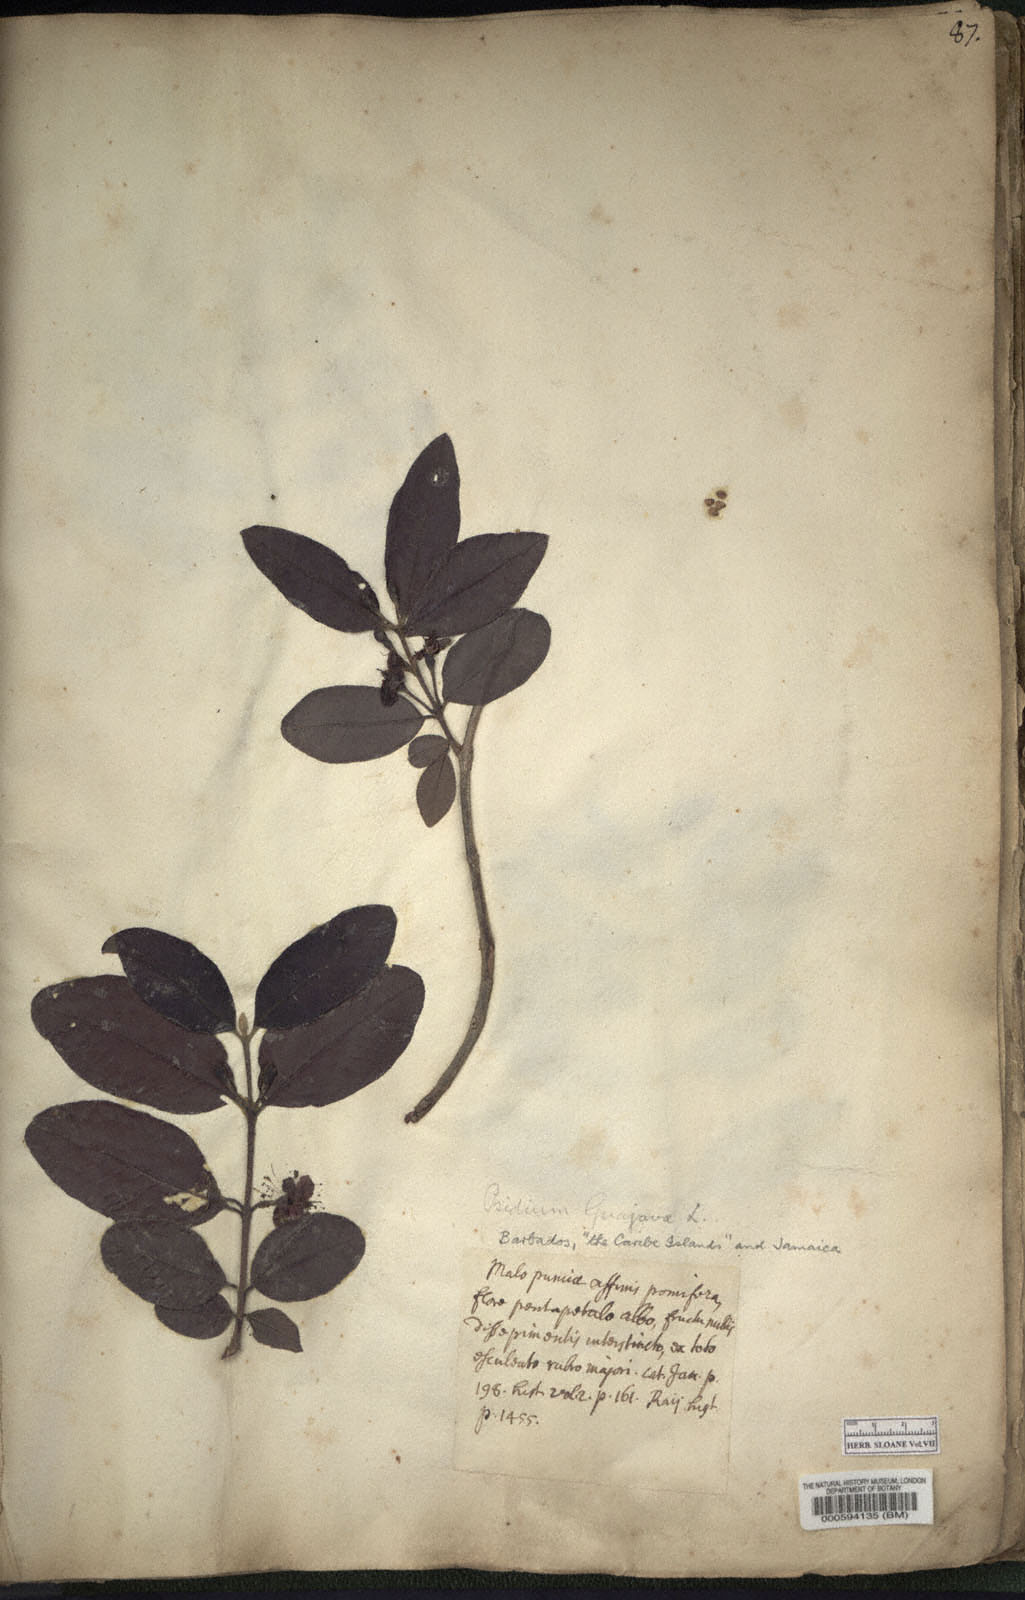 87.
Psidium Guajava L.
Barbados, "the Caribe Islands" and Jamaica
Malo punicæ affinis pomifera,
flore pentapetalo albo, fructu nullis
dissepimentis interstincto, ex toto
esculento rubro majori. Cat. Jam. p.
198. hist. vol. 2. p. 161. Raij hist.
p. 1455.
HERB. SLOANE Vol. VII
THE NATURAL HISTORY MUSEUM, LONDON
DEPARTMENT OF BOTANY
000594135 (BM)